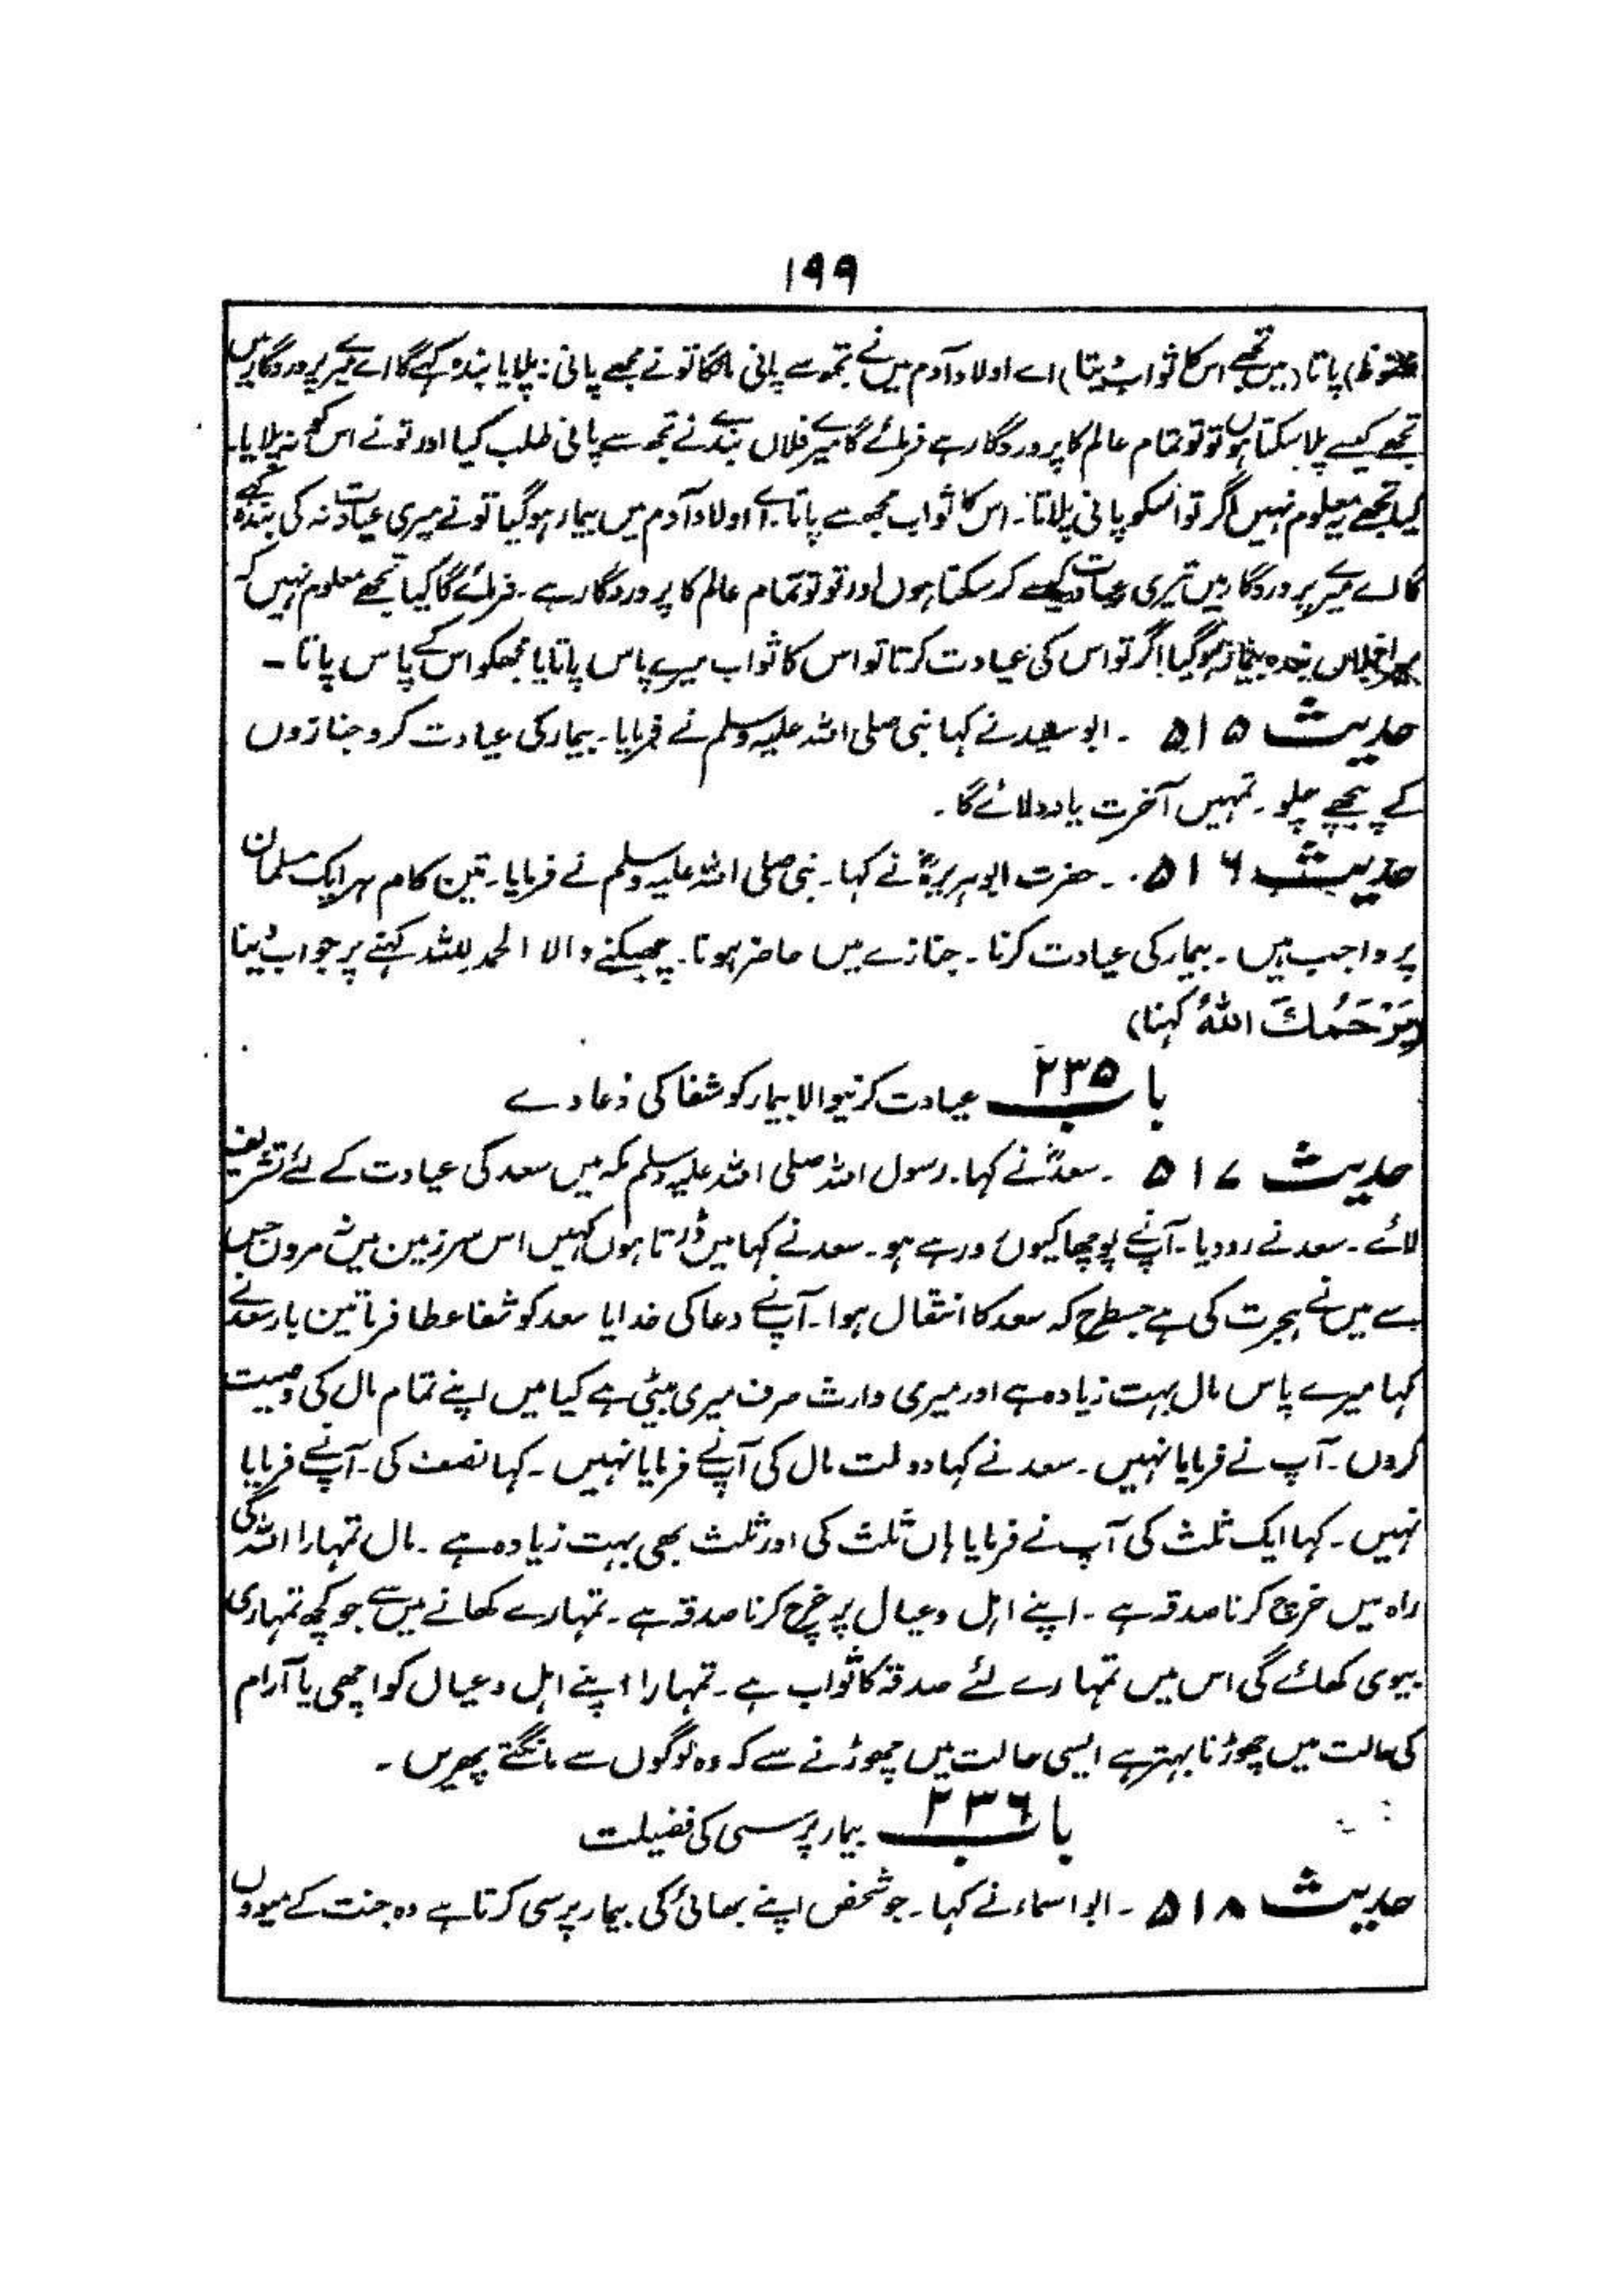 ۱۹۹
محفوظ) پاتا (میں تجھے اس کا ثواب دیتا) اے اولاد آدم میں نے تجھ سے پانی مانگا تو نے مجھے پانی نہ پلایا بندہ کہے گا اے میرے پروردگار میں
تجھے کیسے پلا سکتا ہوں تو تو تمام عالم کا پروردگار ہے فرمائے گا میرے فلاں بندے نے تجھ سے پانی طلب کیا اور تو نے اس کو نہ پلایا۔
کیا تجھے یہ معلوم نہیں اگر تو اسکو پانی پلاتا۔ اس کا ثواب مجھ سے پاتا۔ اے اولاد آدم میں بیمار ہوگیا تو نے میری عیادت نہ کی بندہ کہے
گا اے میرے پروردگار میں تیری عیادت کیسے کر سکتا ہوں اور تو تو تمام عالم کا پروردگار ہے۔ فرمائے گا کیا تجھے معلوم نہیں کہ
میرا فلاں بندہ بیمار ہوگیا اگر تو اس کی عیادت کرتا تو اس کا ثواب میرے پاس پاتا یا مجھکو اس کے پاس پاتا ۔
حدیث ۵۱۵ ۔ ابو سعید نے کہا نبی صلی اللہ علیہ وسلم نے فرمایا۔ بیمار کی عیادت کرو جنازوں
کے پیچھے چلو۔ تمہیں آخرت یاد دلائے گا۔
حدیث ۵۱۶ ۔ حضرت ابو ہریرہؓ نے کہا۔ نبی صلی اللہ علیہ وسلم نے فرمایا۔ تین کام ہر ایک مسلمان
پر واجب ہیں ۔ بیمار کی عیادت کرنا ۔ جنازے میں حاضر ہونا۔ چھینکنے والا الحمد للہ کہنے پر جواب دینا
(یَرْحَمُكَ اللّٰہُ کہنا)
باب ۲۳۵ عیادت کرنیوالا بیمار کو شفا کی دُعا دے
حدیث ۵۱۷ ۔ سعدؓ نے کہا۔ رسول اللہ صلی اللہ علیہ وسلم مکہ میں سعد کی عیادت کے لئے تشریف
لائے ۔ سعد نے رو دیا۔ آپنے پوچھا کیوں رو رہے ہو۔ سعد نے کہا میں ڈرتا ہوں کہیں اس سرزمین میں نہ مروں جس
سے میں نے ہجرت کی ہے جسطرح کہ سعد کا انتقال ہوا۔ آپنے دعا کی خدایا سعد کو شفا عطا فرما تین بار سعد نے
کہا میرے پاس مال بہت زیادہ ہے اور میری وارث صرف میری بیٹی ہے کیا میں اپنے تمام مال کی وصیت
کروں۔ آپ نے فرمایا نہیں ۔ سعد نے کہا دو ثلث مال کی آپنے فرمایا نہیں ۔ کہا نصف کی۔ آپنے فرمایا
نہیں ۔ کہا ایک ثلث کی آپ نے فرمایا ہاں ثلث کی اور ثلث بھی بہت زیادہ ہے ۔ مال تمہارا اللہ کی
راہ میں خرچ کرنا صدقہ ہے ۔ اپنے اہل و عیال پر خرچ کرنا صدقہ ہے ۔ تمہارے کھانے میں سے جو کچھ تمہاری
بیوی کھائے گی اس میں تمہارے لئے صدقہ کا ثواب ہے ۔ تمہارا اپنے اہل و عیال کو اچھی یا آرام
کی حالت میں چھوڑنا بہتر ہے ایسی حالت میں چھوڑنے سے کہ وہ لوگوں سے مانگتے پھریں ۔
باب ۲۳۶ بیمار پرسی کی فضیلت
حدیث ۵۱۸ ۔ ابو اسماء نے کہا ۔ جو شخص اپنے بھائی کی بیمار پرسی کرتا ہے وہ جنت کے میووں